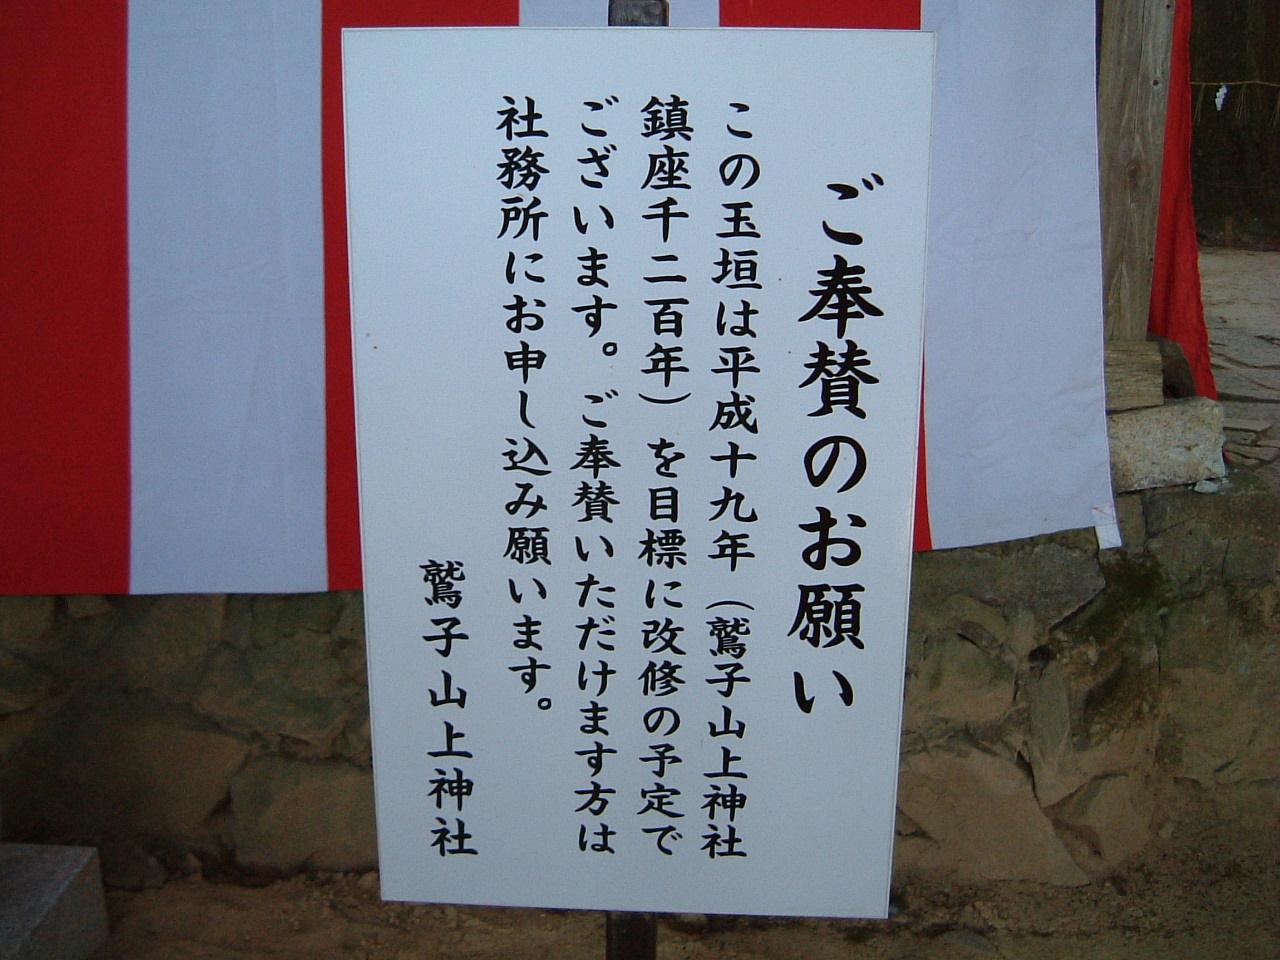 ご奉賛のお願い
この玉垣は平成十九年（鷲子山上神社
鎮座千二百年）を目標に改修の予定で
ございます。ご奉賛いただけます方は
社務所にお申し込み願います。
鷲子山上神社